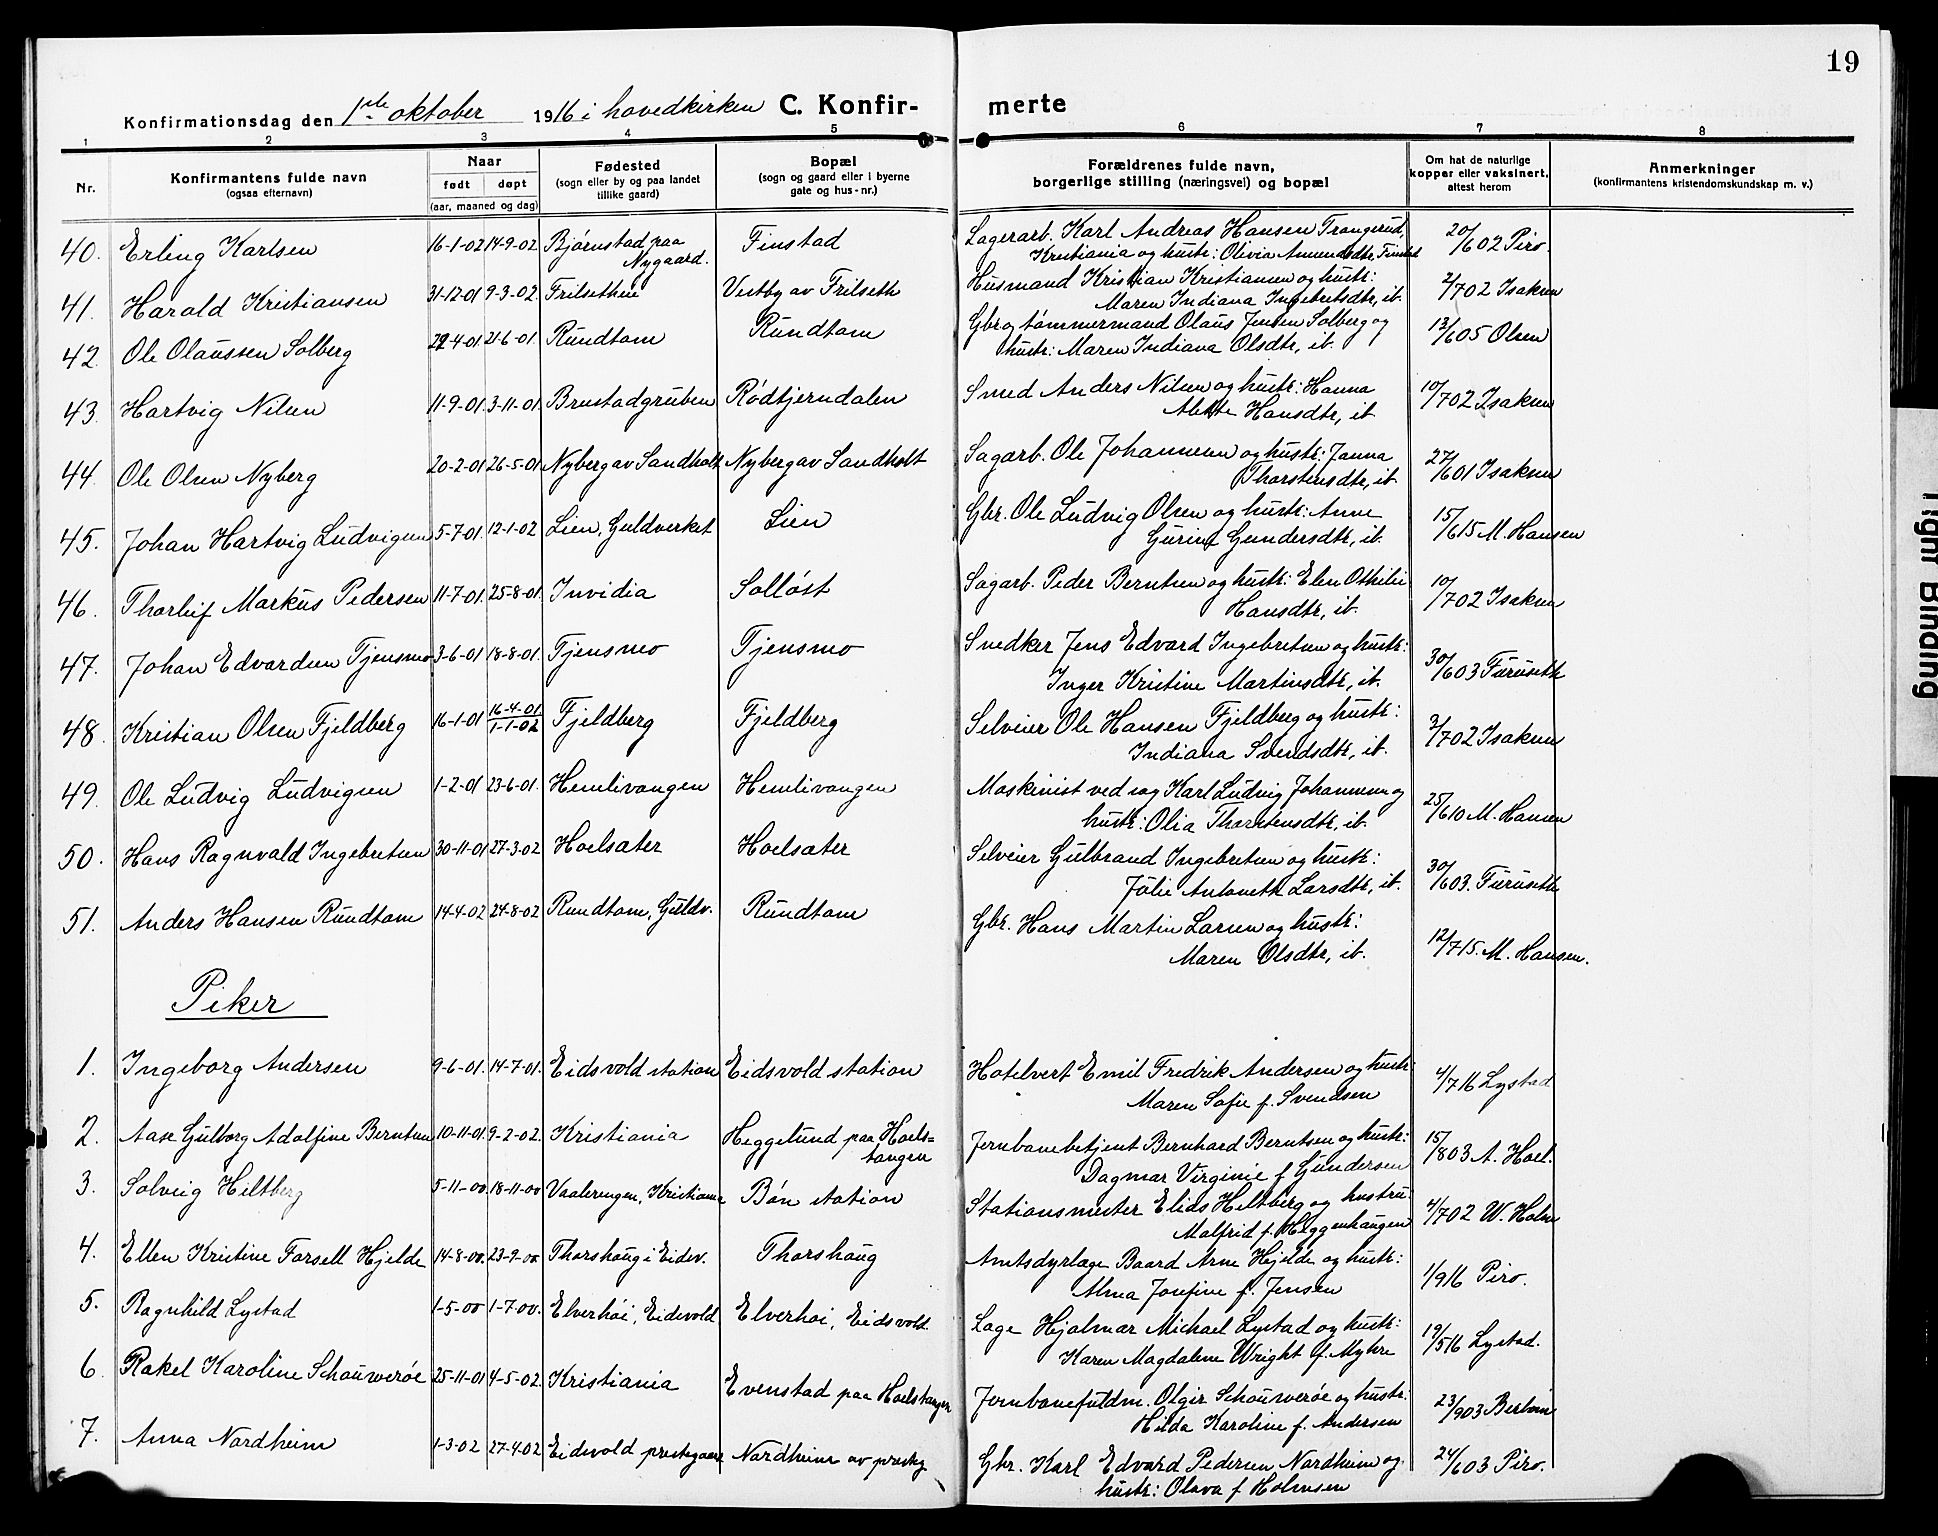 19
Konfirmationsdag den 1ste oktober 1916 i hovedkirken C. Konfir- merte
1 2 3 4 5 6 7 8
Nr. Konfirmantens fulde navn (ogsaa efternavn) Naar født døpt (aar, maaned og dag) Fødested (sogn eller by og paa landet tillike gaard) Bopæl (sogn og gaard eller i byerne gate og hus-nr.) Forældrenes fulde navn, borgerlige stilling (næringsvei) og bopæl Om hat de naturlige kopper eller vaksinert, attest herom Anmerkninger (konfirmantens kristendomskundskap m. v.)
40. Erling Karlsen 16-1-02 14-9-02 Bjørnstad paa Nygaard. Finstad Lagerarb. Karl Andreas Hansen Trangerud, 20/6 02 Piro.
Kristiania og hustr: Olivia Amundsdtr, Finstad
41. Harald Kristiansen 31-12-01 9-3-02 Frilsetheie Vestby av Frilseth Husmand Kristian Kristiansen og hustr: 2/7 02 Isaksen
Maren Indiana Ingebretsdtr, ib.
42. Ole Olaussen Solberg 22-4-01 21-6-01 Rundtom Rundtom Gbr og tømmermand Olaus Jensen Solberg og 13/6 05 Olsen
hustr: Maren Indiana Olsdtr, ib.
43. Hartvig Nilsen 11-9-01 3-11-01 Brustadgruben Rødtjerndalen Smed Anders Nilsen og hustr: Hanna 10/7 02 Isaksen
Alette Hansdtr, ib
44. Ole Olsen Nyberg 20-2-01 26-5-01 Nyberg av Sandholt Nyberg av Sandholt Sagarb. Ole Johannesen og hustr: Janna 27/6 01 Isaksen
Thorstensdtr, ib
45. Johan Hartvig Ludvigsen 5-7-01 12-1-02 Lien, Guldverket Lien Gbr. Ole Ludvig Olsen og hustr: Anne 15/6 15 M. Hansen
Gurine Gundersdtr, ib.
46. Thorleif Markus Pedersen 11-7-01 25-8-01 Invidia Solløst Sagarb. Peder Berntsen og hustr: Elen Othilie 10/7 02 Isaksen
Hansdtr, ib.
47. Johan Edvardsen Tjensmo 3-6-01 18-8-01 Tjensmo Tjensmo Snedker Jens Edvard Ingebretsen og hustr: 30/6 03 Furuseth
Inger Kristine Martinsdtr, ib.
48. Kristian Olsen Fjeldberg 16-1-01 16-4-01 1-1-02 Fjeldberg Fjeldberg Selveier Ole Hansen Fjeldberg og hustr: 3/7 02 Isaksen
Indiana Svendsdtr, ib.
49. Ole Ludvig Ludvigsen 1-2-01 23-6-01 Hemlivangen Hemlivangen Maskinist ved sag Karl Ludvig Johannesen og 25/6 10 M. Hansen
hustr: Olia Thorstensdtr, ib.
50. Hans Ragnvald Ingebretsen 30-11-01 27-3-02 Hoelsæter Hoelsæter Selveier Gulbrand Ingebretsen og hustr: 30/6 03. Furuseth
Julie Antonette Larsdtr, ib.
51. Anders Hansen Rundtom 14-4-02 24-8-02 Rundtom, Guldv. Rundtom Gbr. Hans Martin Larsen og hustr: 12/7 15. M. Hansen.
Maren Olsdtr, ib.
Piker
1. Ingeborg Andersen 9-6-01 14-7-01 Eidsvold station Eidsvold station Hotelvert Emil Fredrik Andersen og hustr: 4/7 16 Lystad
Maren Sofie f. Svendsen
2. Aase Gulborg Adolfine Berntsen 10-11-01 9-2-02 Kristiania Heggelund paa Hoels= Jernbanebetjent Bernhard Berntsen og hustr: 15/8 03 A. Hoel.
tangen Dagmar Virginie f Gundersen
3. Solveig Hiltberg 5-11-00 18-11-00 Vaalerengen, Kristiania Bøn station Stationsmester Elids Hiltberg og hustru 4/7 02 W. Holm
Malfrid f. Heggenhaugen
4. Ellen Kristine Forsell Hjelde 14-8-00 23-9-00 Thorshoug i Eidsv. Thorshaug Amtsdyrlæge Baard Arne Hjelde og hustr: 1/9 16 Piro.
Alma Josefine f. Jensen
5. Ragnhild Lystad 1-5-00 1-7-00. Elverhøi, Eidsvold Elverhøi, Eidsvold. Læge Hjalmar Michael Lystad og hustr: 19/5 16 Lystad.
Karen Magdalene Wright f. Myhre
6. Rakel Karoline Schouwerøe 25-11-01 4-5-02 Kristiania Evenstad paa Hoelstangen Jernbanefuldm. Olgir Schouwerøe og hustr: 23/9 03
Hilda Karoline f. Andersen
7. Anna Nordheim 1-3-02 27-4-02 Eidsvold prestegaard Nordheim av presteg Gbr. Karl Edvard Pedersen Nordheim og 24/6 03 Piro.
hustr: Olava f Holmsen
Tight Binding